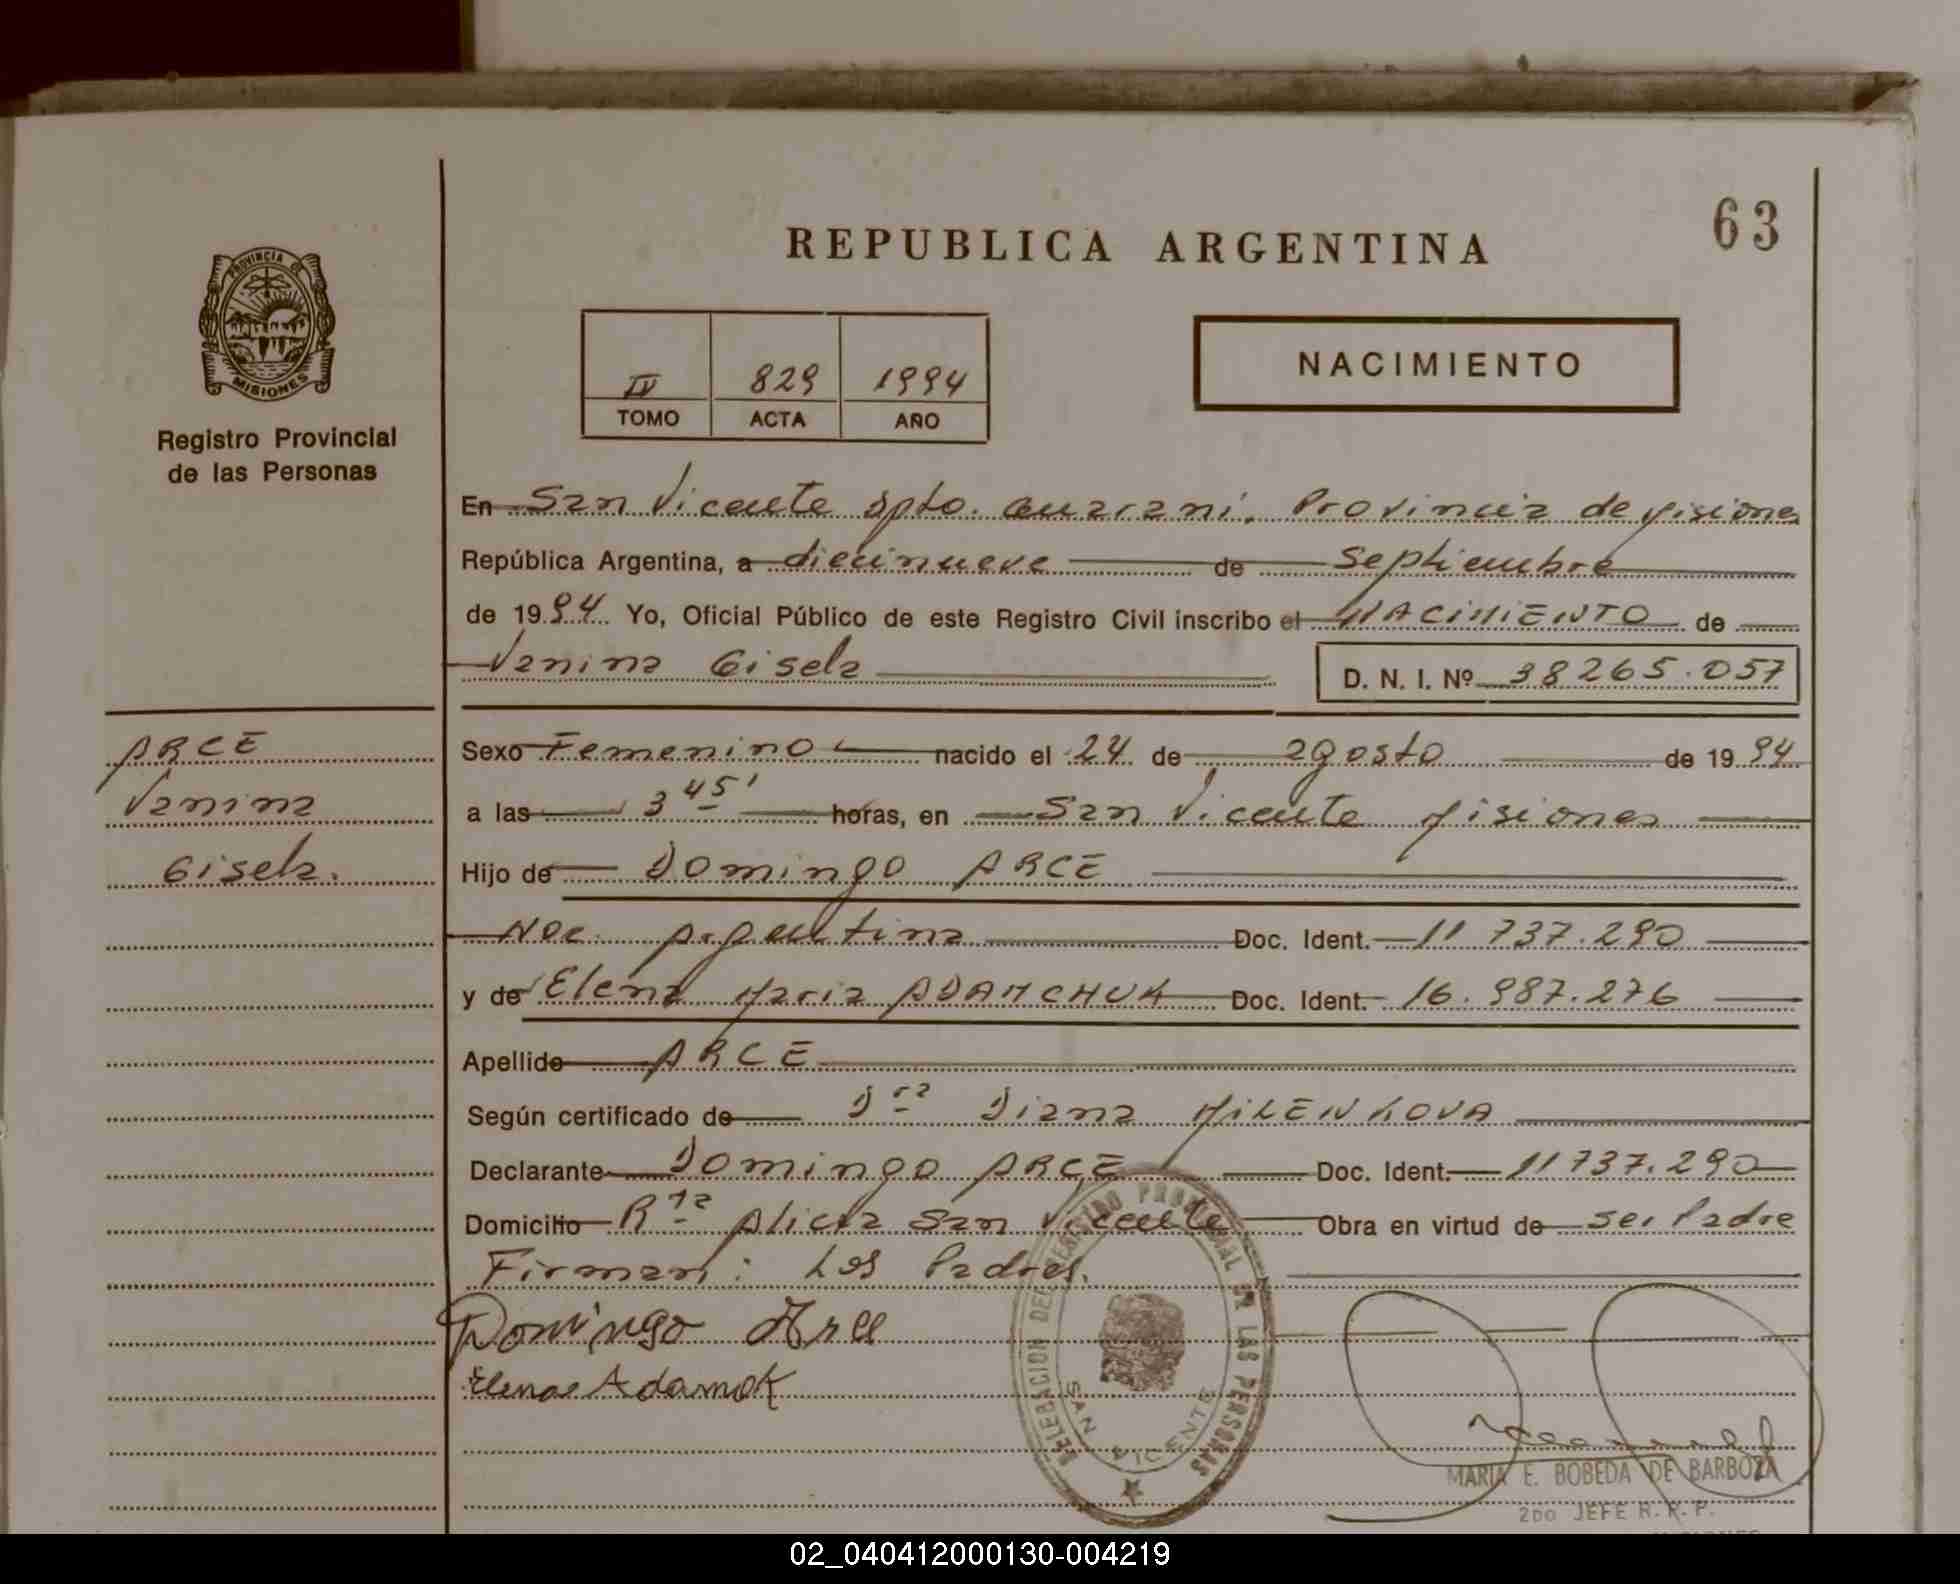 63
REPUBLICA ARGENTINA
PROVINCIA DE
MISIONES
Registro Provincial
de las Personas
IV 829 1994
TOMO ACTA AÑO
NACIMIENTO
En San Vicente Dpto. Guaraní. Provincia de Misiones
República Argentina, a diecinueve de Septiembre
de 1994 Yo, Oficial Público de este Registro Civil inscribo el NACIMIENTO de
Vanina Gisela D. N. I. Nº 38265.057
ARCE
Vanina
Gisela.
Sexo Femenino nacido el 24 de agosto de 1994
a las 3 45' horas, en San Vicente Misiones
Hijo de Domingo ARCE
Nac. Argentina Doc. Ident. 11 737.290
y de Elena Maria ADAMCHUK Doc. Ident. 16.987.276
Apellido ARCE
Según certificado de Dra Diana MILENKOVA
Declarante Domingo ARCE Doc. Ident. 11737.290
Domicilio Alicia San Vicente Obra en virtud de ser Padre
Firman: Los Padres.
Domingo Arce
Elena Adamok
DELEGACION DEL REGISTRO PROVINCIAL DE LAS PERSONAS
SAN VICENTE
MARIA E. BOBEDA DE BARBOZA
2DO JEFE R. P. P.
02_040412000130-004219